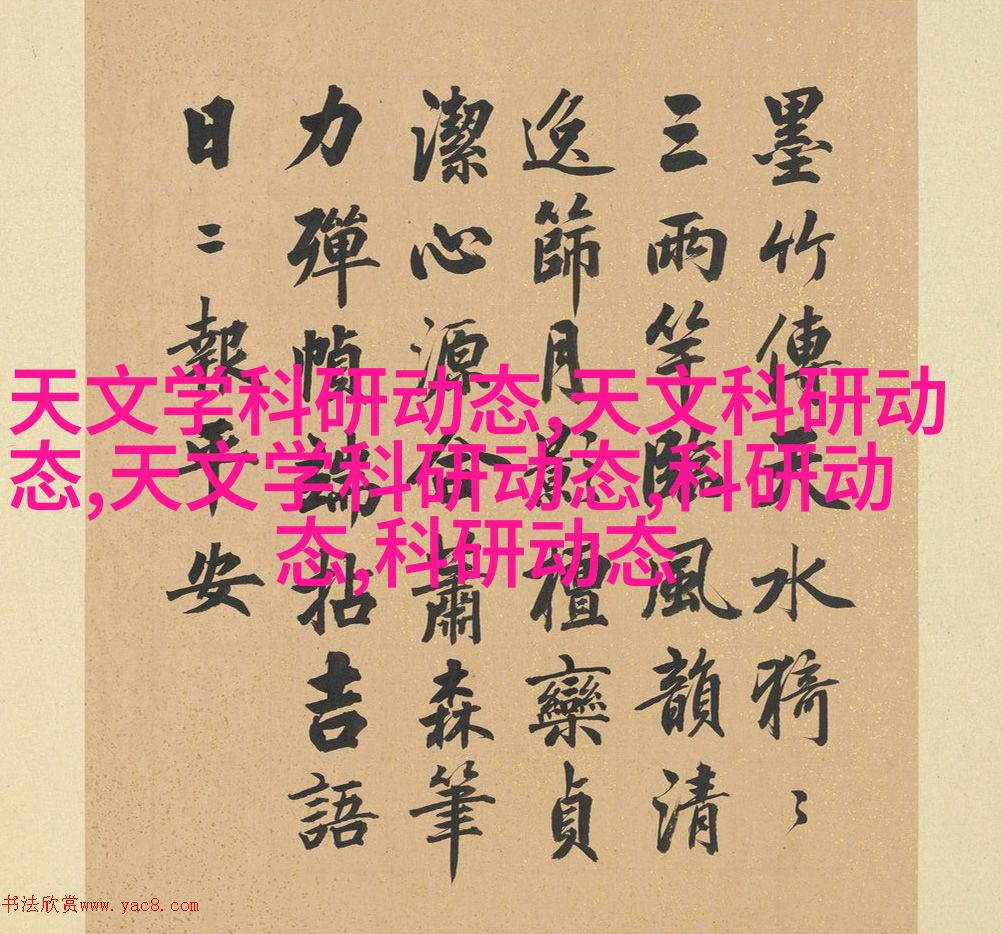 墨竹傳天水猗〻
三兩竿臨風韻清
逸篩月影檀欒貞
潔心源合蕭森筆
力彈幀端拈吉語
日二報平安
天文学科研动态,天文科研动
态,天文学科研动态,科研动
态,科研动态
书法欣赏www.yac8.com